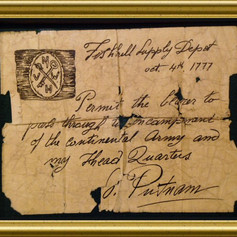 Fishkill Supply Depot
oct. 4th 1777
Permit the bearer to
pass through the encampment
of the continental Army and
my Head Quarters
I. Putnam